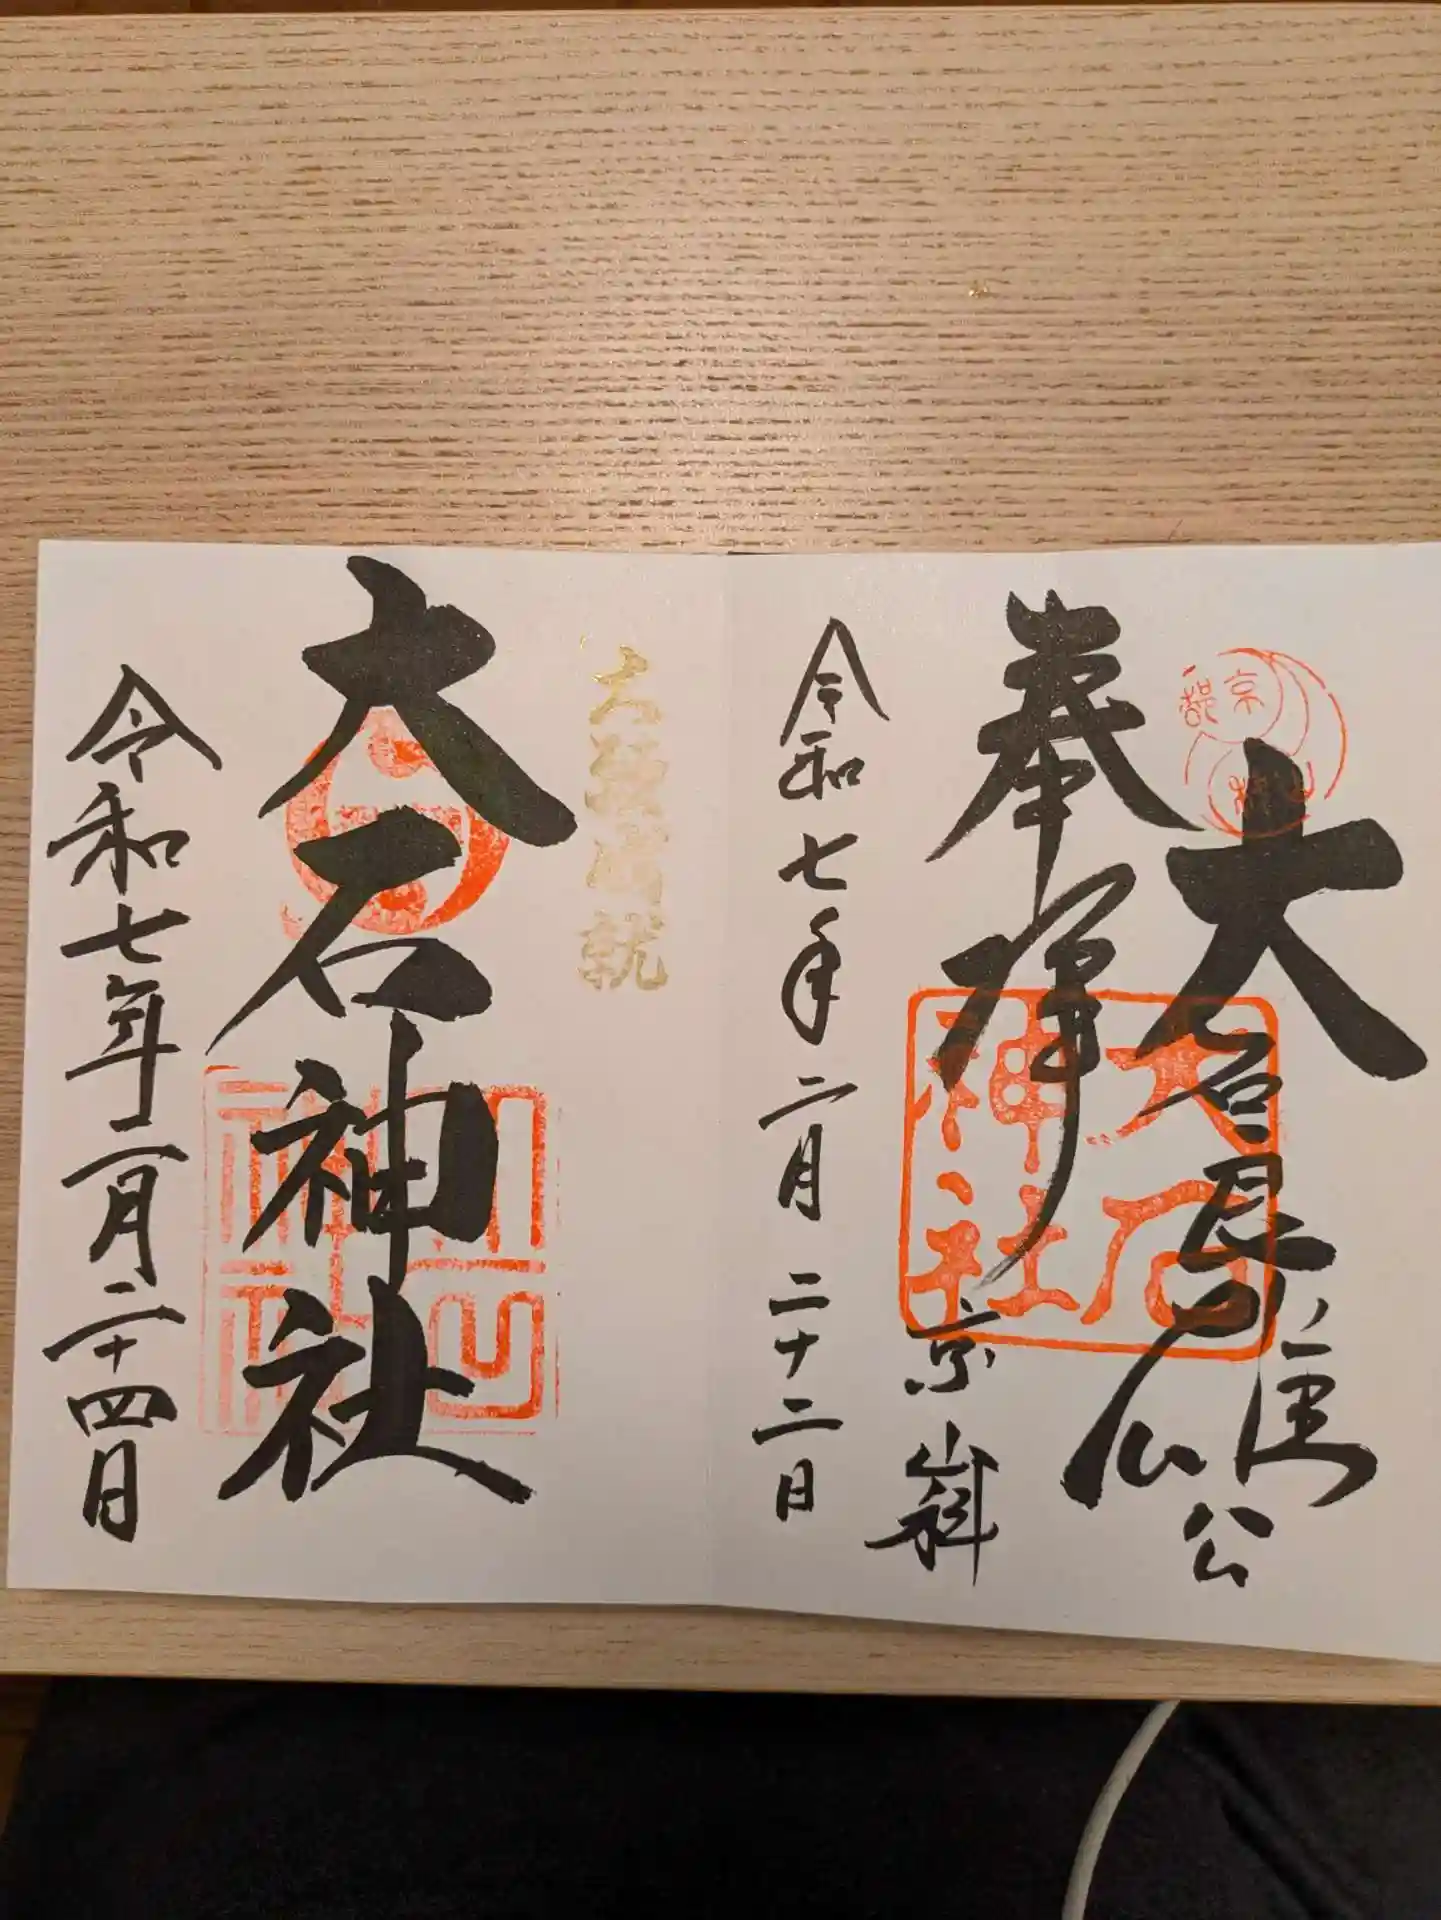 京都
山科
大石良雄公
奉拝
大石神社
京山科
令和七年二月二十二日
大願成就
大石神社
令和七年二月二十四日